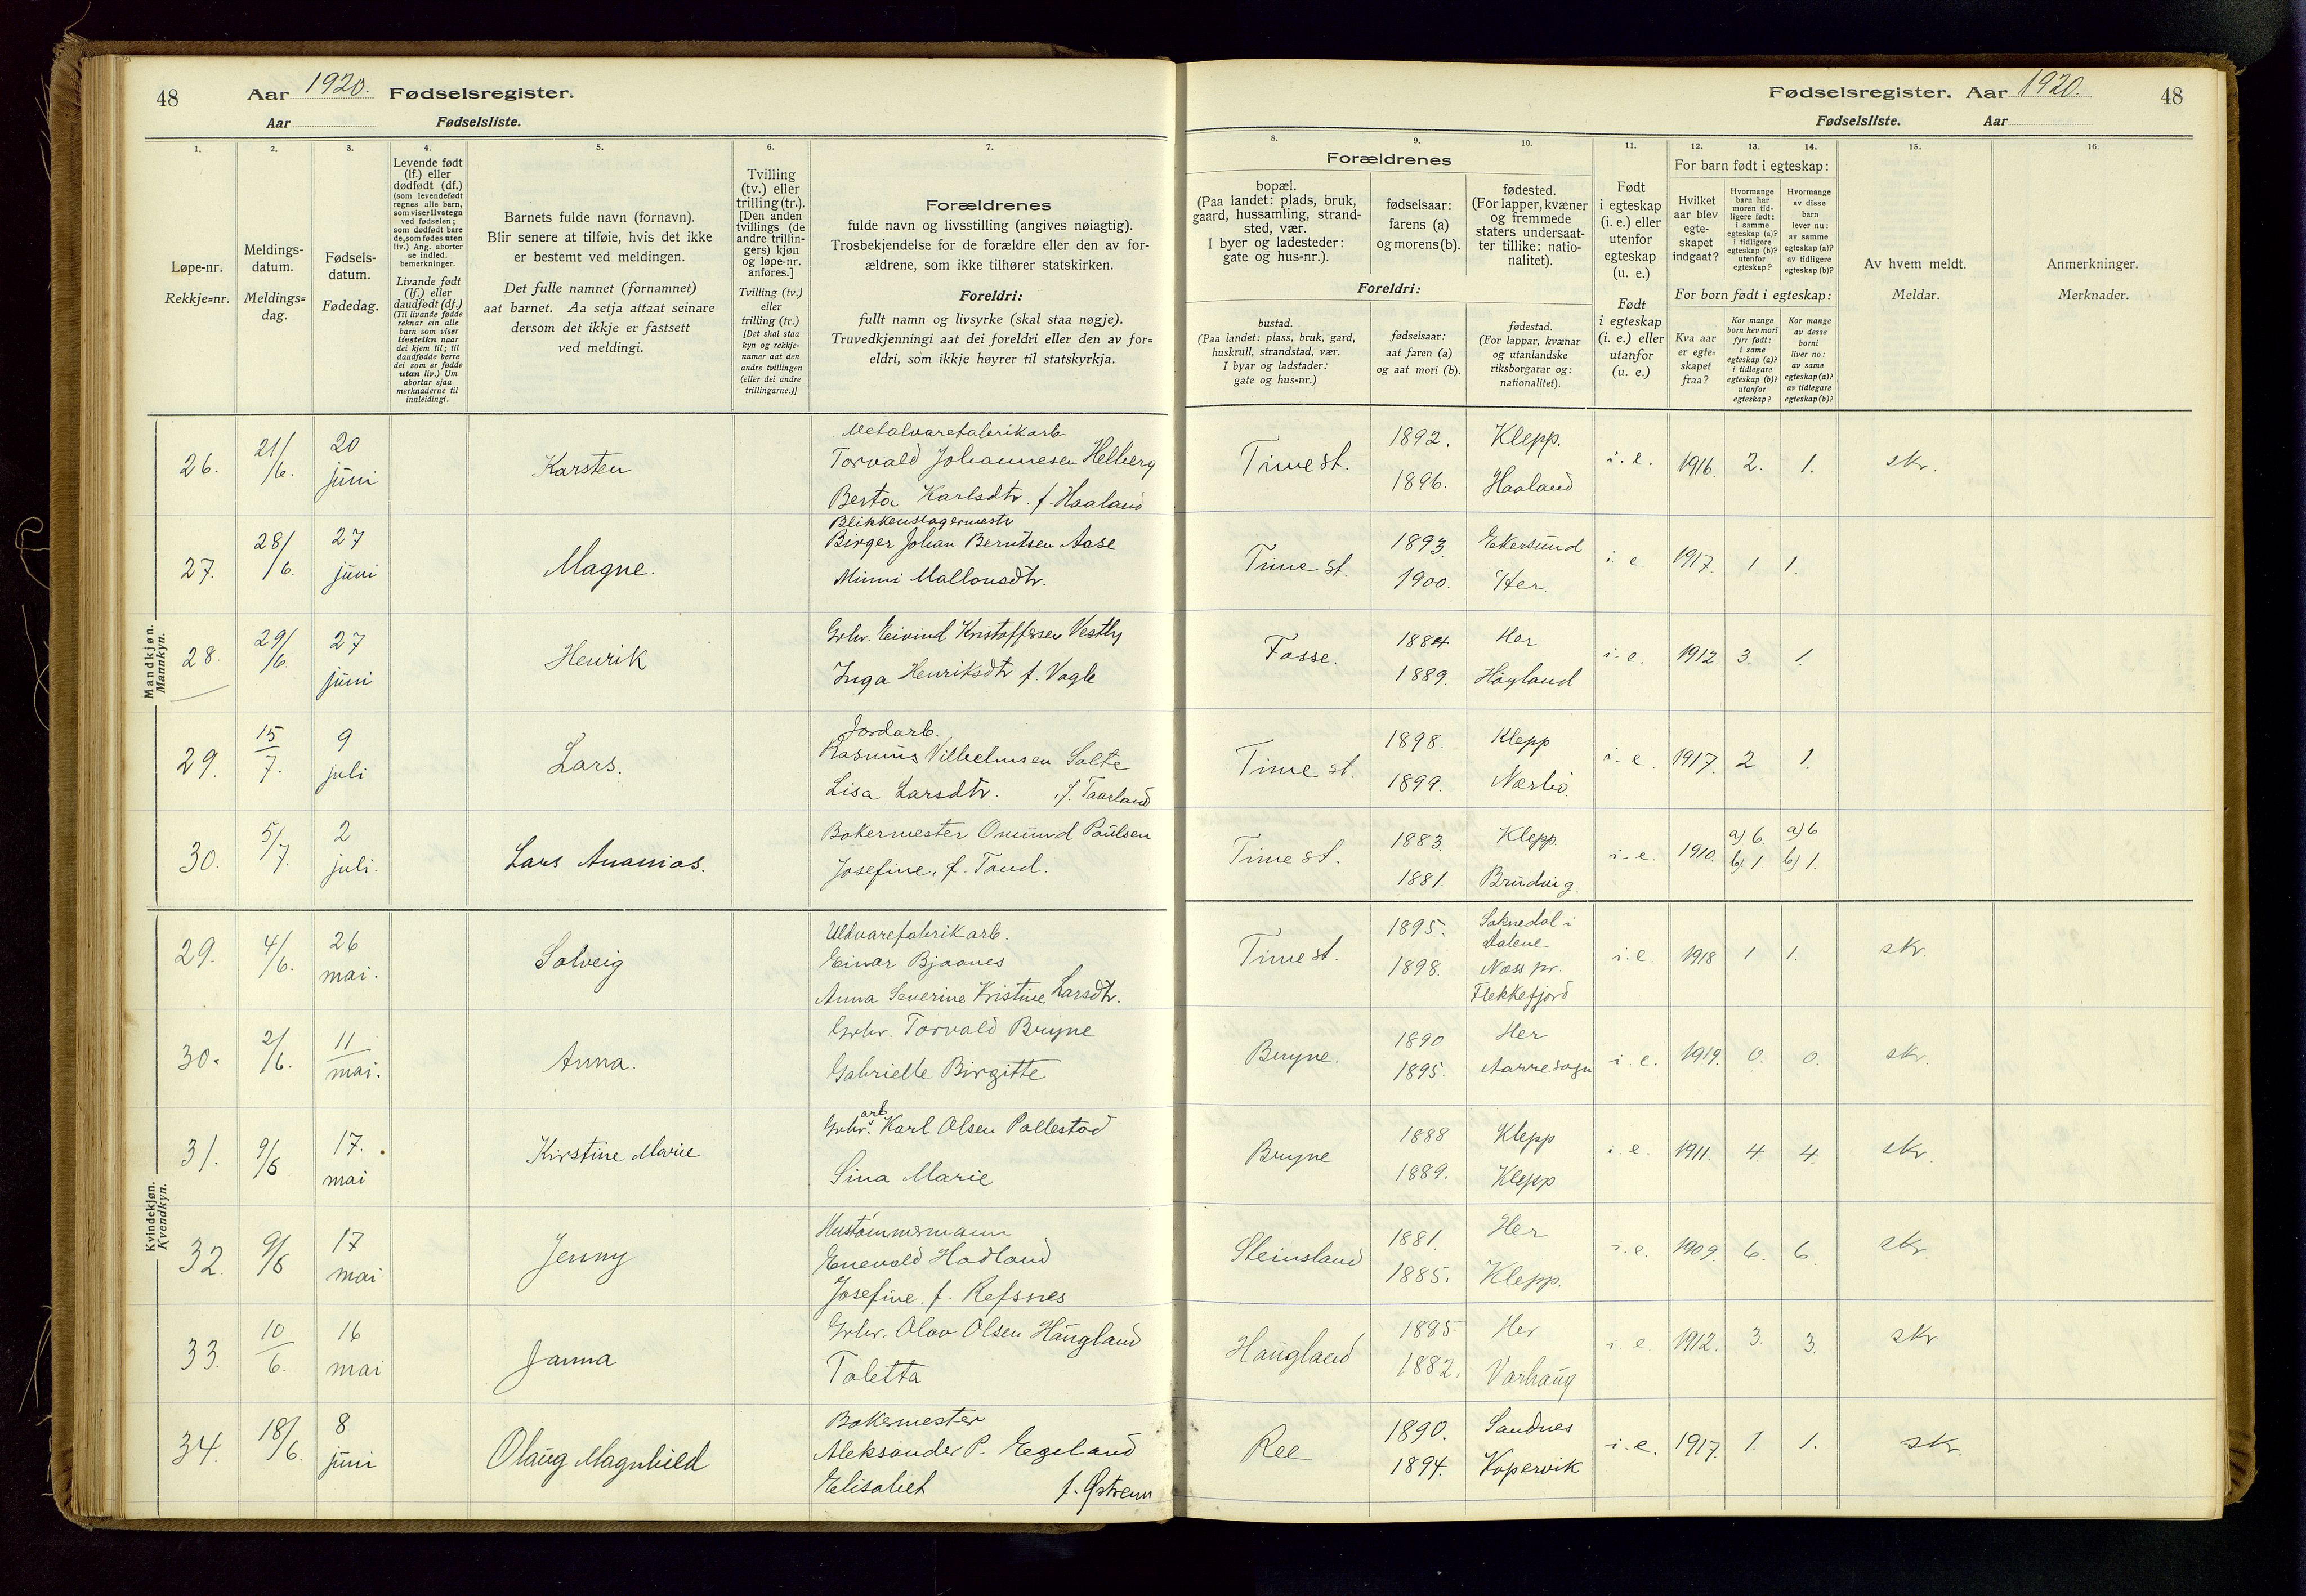 48
Aar 1920. Fødselsregister.
Aar Fødselsliste.
1.
Løpe-nr.
Rekkje=nr.
2.
Meldings-
datum.
Meldings=
dag.
3.
Fødsels-
datum.
Fødedag.
4.
Levende født
(lf.) eller
dødfødt (df.)
(som levendefødt
regnes alle barn,
som viser livstegn
ved fødselen;
som dødfødt bare
de, som fødes uten
liv.) Ang. aborter
se indled.
bemerkninger.
Livande født
(lf.) eller
daudfødt (df.)
(Til livande fødde
reknar ein alle
barn som viser
livsteikn naar
dei kjem til; til
daudfødde berre
dei som er fødde
utan liv.) Um
abortar sjaa
merknaderne til
innleidingi.
5.
Barnets fulde navn (fornavn).
Blir senere at tilføie, hvis det ikke
er bestemt ved meldingen.
Det fulle namnet (fornamnet)
aat barnet. Aa setja attaat seinare
dersom det ikkje er fastsett
ved meldingi.
6.
Tvilling
(tv.) eller
trilling (tr.).
[Den anden
tvillings (de
andre trillin-
gers) kjøn
og løpe-nr.
anføres.]
Tvilling (tv.)
eller
trilling (tr.)
[Det skal staa
kyn og rekkje-
numer aat den
andre tvillingen
(eller dei andre
trillingarne.)]
7.
Forældrenes
fulde navn og livsstilling (angives nøiagtig).
Trosbekjendelse for de forældre eller den av for-
ældrene, som ikke tilhører statskirken.
Foreldri:
fullt namn og livsyrke (skal staa nøgje).
Truvedkjenningi aat dei foreldri eller den av for=
eldri, som ikkje høyrer til statskyrkja.
Mandkjøn.
Mannkyn.
26. 21/6. 20 juni Karsten
Metalvarefabrikarb
Torvald Johannesen Helberg
Berta Karlsdtr. f. Haaland
27. 28/6. 27 juni Magne.
Blikkenslagermestr
Birger Johan Berntsen Aase
Minni Mallonsdtr.
28. 29/6. 27 juni Henrik
Grbr. Eivind Kristoffersen Vestly
Inga Henriksdtr f. Vagle
29. 15/7. 9 juli Lars.
Jordarb.
Rasmus Vilhelmsen Salte
Lisa Larsdtr. f. Taarland
30. 5/7. 2 juli. Lars Ananias.
Bakermester Omund Paulsen
Josefine, f. Tand.
Kvindekjøn.
Kvendkyn.
29. 4/6. 26 mai. Solveig
Uldvarefabrikarb.
Einar Bjaanes
Anna Severine Kristine Larsdtr.
30. 2/6. 11 mai. Anna.
Grbr. Torvald Bryne
Gabrielle Birgitte
31. 9/6 17. mai Kirstine Marie
arb
Grbr. Karl Olsen Pollestad
Sina Marie
32. 9/6 17 mai Jenny
Hustømmermann
Enevald Hadland
Josefine. f. Refsnes
33. 10/6. 16 mai Janna
Grbr. Olav Olsen Haugland
Taletta
34. 18/6. 8 juni Olaug Magnhild
Bakermester
Aleksander P. Egeland
Elisabet f. Østrem
Fødselsregister. Aar 1920. 48
Fødselsliste. Aar
Forældrenes
8.
bopæl.
(Paa landet: plads, bruk,
gaard, hussamling, strand-
sted, vær.
I byer og ladesteder:
gate og hus-nr.).
Foreldri:
bustad.
(Paa landet: plass, bruk, gard,
huskrull, strandstad, vær.
I byar og ladstader:
gate og hus=nr.)
9.
fødselsaar:
farens (a)
og morens (b).
fødselsaar:
aat faren (a)
og aat mori (b).
10.
fødested.
(For lapper, kvæner
og fremmede
staters undersaat-
ter tillike: natio-
nalitet).
fødestad.
(For lappar, kvænar
og utanlandske
riksborgarar og:
nationalitet).
11.
Født
i egteskap
(i. e.) eller
utenfor
egteskap
(u. e.)
Født
i egteskap
(i. e.) eller
utanfor
(u. e.)
For barn født i egteskap:
12.
Hvilket
aar blev
egte-
skapet
indgaat?
For born født i egteskap:
Kva aar
er egte=
skapet
fraa?
13.
Hvormange
barn har
moren tid-
ligere født:
i samme
egteskap (a)?
i tidligere
egteskap (b)?
utenfor
egteskap?
Kor mange
born hev mori
fyrr født:
i same
egteskap (a)?
i tidlegare
egteskap (b)?
utanfor
egteskap?
14.
Hvormange
av disse
barn
lever nu:
av samme
egteskap (a)?
av tidligere
egteskap (b)?
Kor mange
av desse
borni
liver no:
av same
egteskap (a)?
av tidlegare
egteskap (b)?
15.
Av hvem meldt.
Meldar.
16.
Anmerkninger.
Merknader.
Time st. 1892. Klepp. i. e. 1916. 2. 1. skr.
1896. Haaland
Time st. 1893. Ekersund i. e. 1917. 1 1.
1900. Her.
Fosse. 1884 Her i. e. 1912. 3. 1.
1889. Høyland
Time st. 1898. Klepp i. e. 1917. 2 1.
1899. Nærbø.
Time st. 1883. Klepp. i. e. 1910. a) 6 b) 1. a) 6 b) 1.
1881. Brudvig.
Time st. 1895. Soknedal i Dalene i. e. 1918 1 1. skr.
1898. Næss pr. Flekkefjord
Bryne. 1890 Her i. e. 1919. 0. 0. skr.
1895. Aarre sogn
Bryne 1888 Klepp i. e. 1911. 4. 4. skr.
1889. Klepp
Steinsland 1881. Her i. e. 1909. 6. 6. skr.
1885. Klepp.
Haugland 1885 Her i. e. 1912. 3. 3. skr
1882. Varhaug
Ree 1890. Sandnes i. e. 1917. 1. 1. skr.
1894. Kopervik